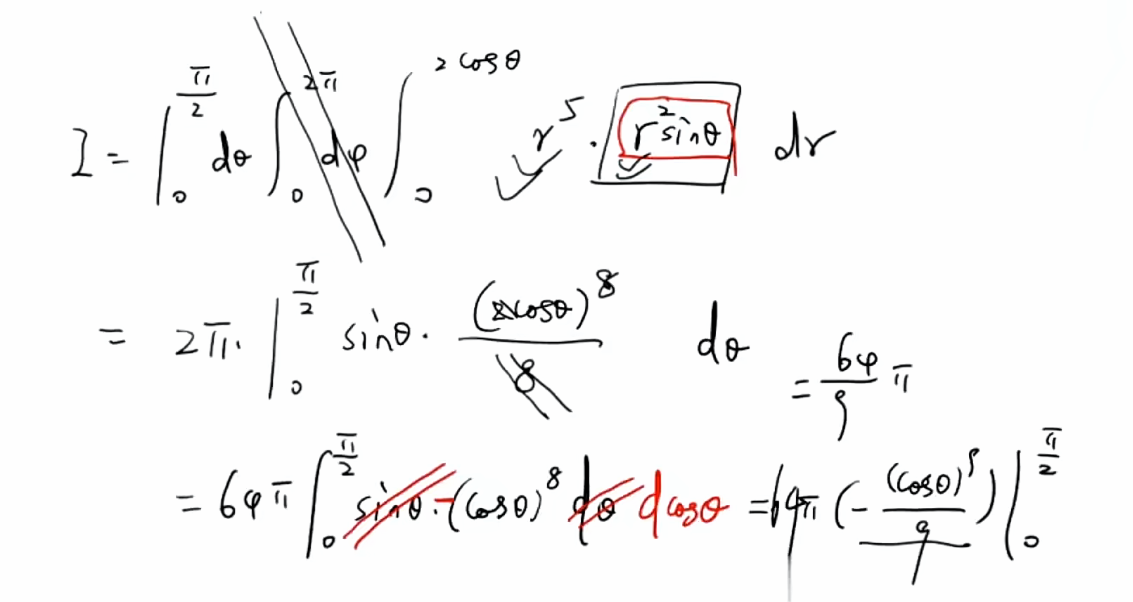 I = ∫₀^{π/2} dθ ∫₀^{2π} dφ ∫₀^{2cosθ} r⁵ · r² sinθ dr
= 2π · ∫₀^{π/2} sinθ · (2cosθ)⁸/8 dθ
= 64π ∫₀^{π/2} sinθ · -(cosθ)⁸ dθ dcosθ = 64π (- (cosθ)⁹/9) |₀^{π/2}
= 64/9 π